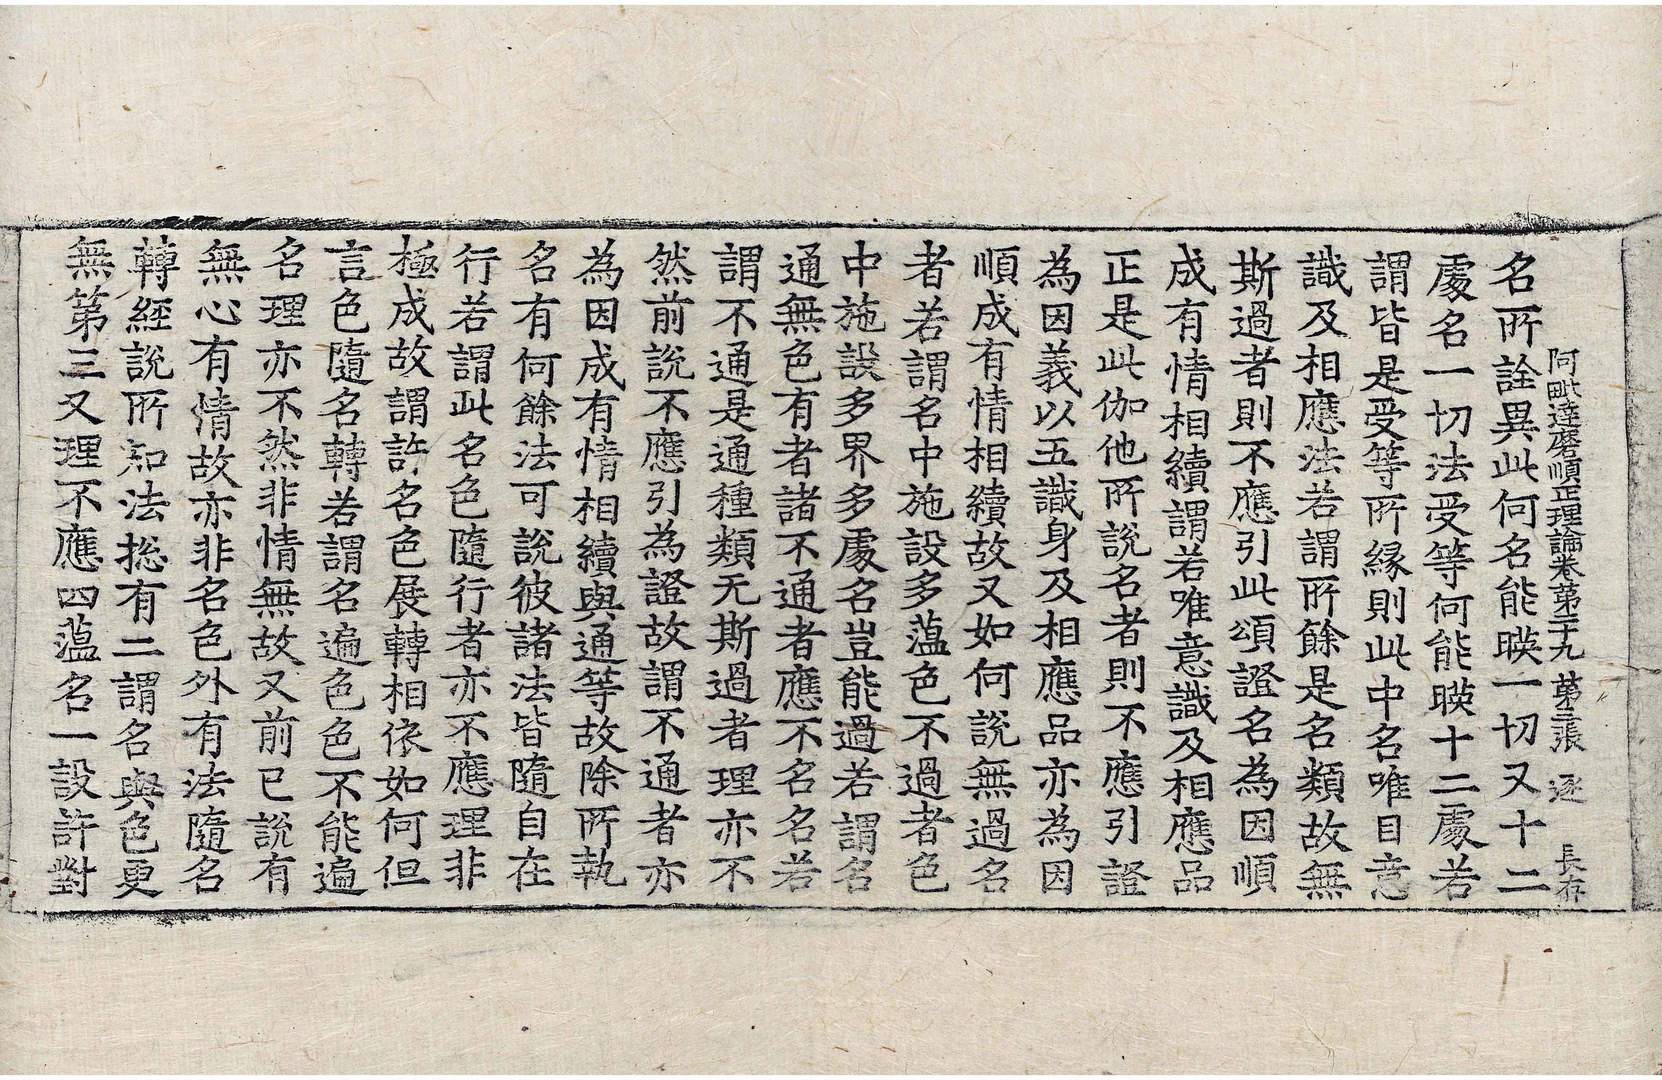 阿毗達磨順正理論卷第二十九 第三張 逐 長存
名所詮異此何名能暎一切又十二
處名一切法受等何能暎十二處若
謂皆是受等所緣則此中名唯目意
識及相應法若謂所餘是名類故無
斯過者則不應引此頌證名為因順
成有情相續謂若唯意識及相應品
正是此伽他所說名者則不應引證
為因義以五識身及相應品亦為因
順成有情相續故又如何說無過名
者若謂名中施設多薀色不過者色
中施設多界多處名豈能過若謂名
通無色有者諸不通者應不名名若
謂不通是通種類无斯過者理亦不
然前說不應引為證故謂不通者亦
為因成有情相續與通等故除所執
名有何餘法可說彼諸法皆隨自在
行若謂此名色隨行者亦不應理非
極成故謂許名色展轉相依如何但
言色隨名轉若謂名遍色色不能遍
名理亦不然非情無故又前已說有
無心有情故亦非名色外有法隨名
轉經說所知法捴有二謂名與色更
無第三又理不應四薀名一設許對